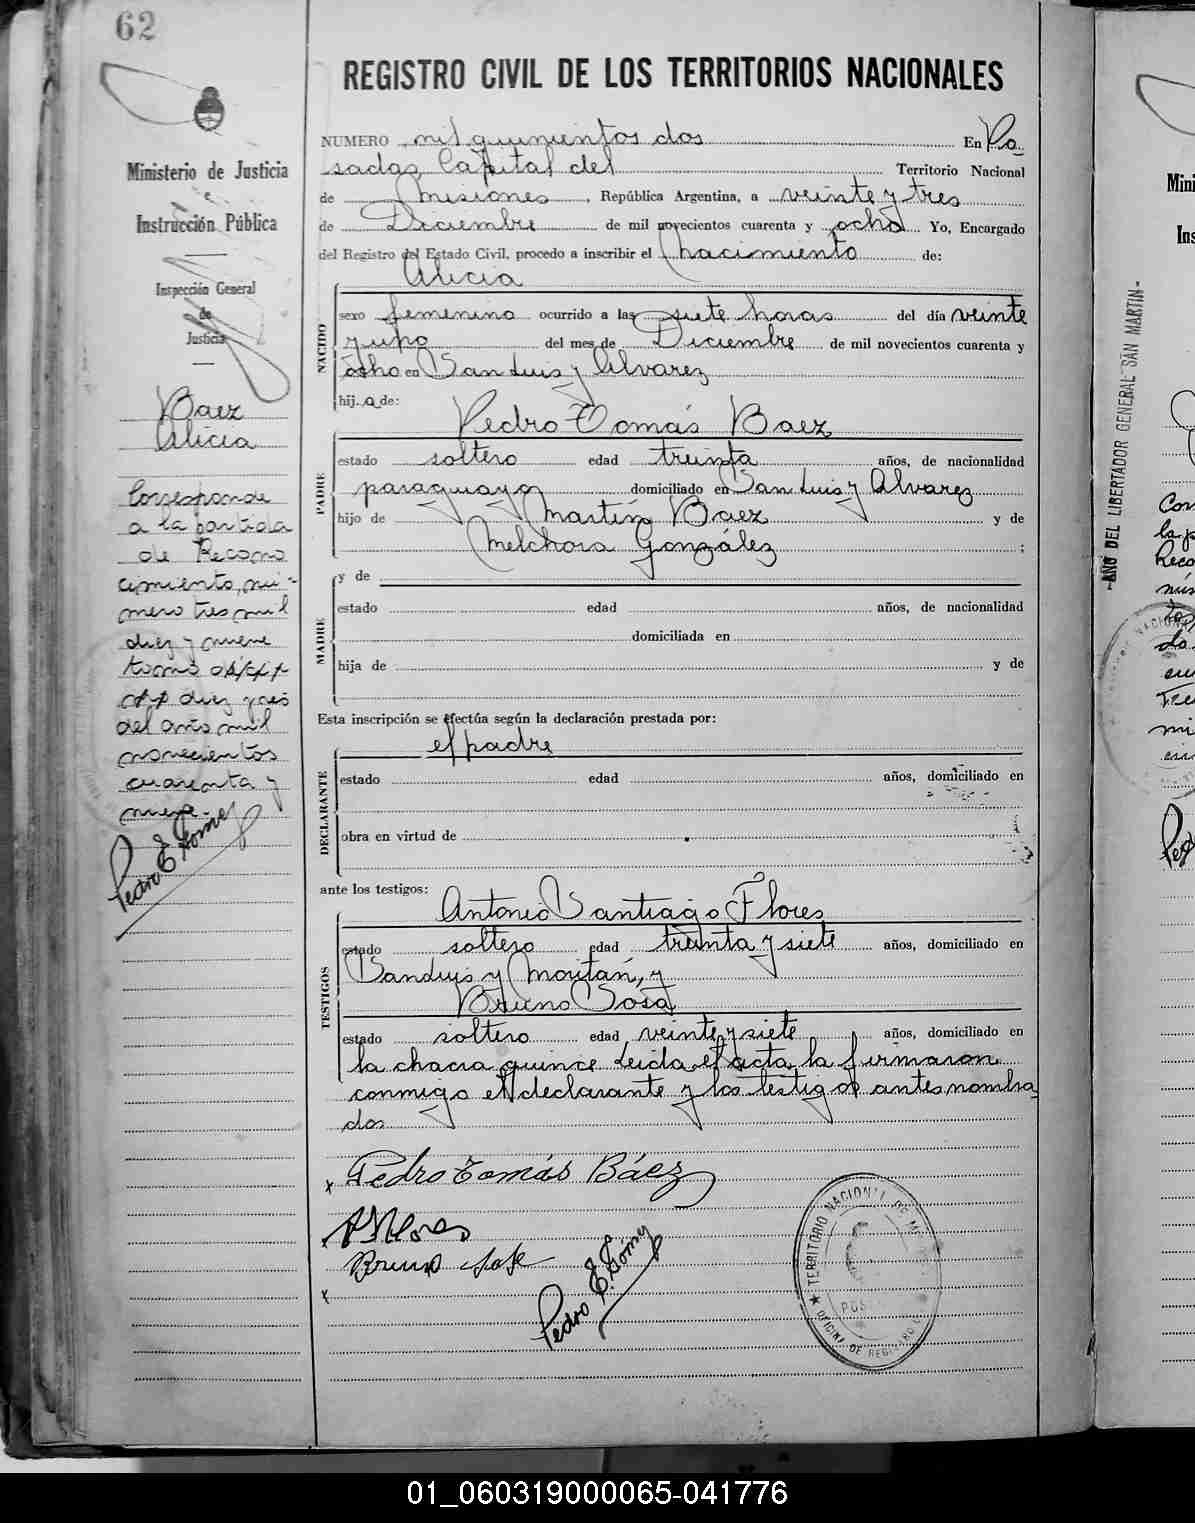 62
REGISTRO CIVIL DE LOS TERRITORIOS NACIONALES
NUMERO mil quinientos dos En Po
sadas Capital del Territorio Nacional
de Misiones, República Argentina, a veinte y tres
de Diciembre de mil novecientos cuarenta y ocho Yo, Encargado
del Registro del Estado Civil, procedo a inscribir el nacimiento de:
Alicia
NACIDO
sexo femenino ocurrido a las siete horas del día veinte
y uno del mes de Diciembre de mil novecientos cuarenta y
ocho en San Luis y Alvarez
hij.a de:
Pedro Tomás Baez
PADRE
estado soltero edad treinta años, de nacionalidad
paraguayo domiciliado en San Luis y Alvarez
hijo de Martín Baez y de
Melchora González ;
y de
MADRE
estado edad años, de nacionalidad
domiciliada en
hija de y de
Esta inscripción se efectúa según la declaración prestada por:
el padre
DECLARANTE
estado edad años, domiciliado en
obra en virtud de
ante los testigos:
Antonio Santiago Flores
TESTIGOS
estado soltero edad treinta y siete años, domiciliado en
San Luis y
Bruno Sosa
estado soltero edad veinte y siete años, domiciliado en
la chacra quince Leida el acta la firmaron
conmigo el declarante y los testigos antes nombra
dos
Pedro Tomás Báez
Bruno
Pedro E. Gómez
TERRITORIO NACIONAL DE
OFICINA DE
Ministerio de Justicia
e
Instrucción Pública
Inspección General
de
Justicia
Baez
Alicia
Corresponde
a la partida
de Recono
cimiento, nú-
mero tres mil
diez y nueve
tomo
diez y seis
del año mil
novecientos
cuarenta y
nueve.
Pedro E. Gómez
-AÑO DEL LIBERTADOR GENERAL SAN MARTIN-
01_060319000065-041776